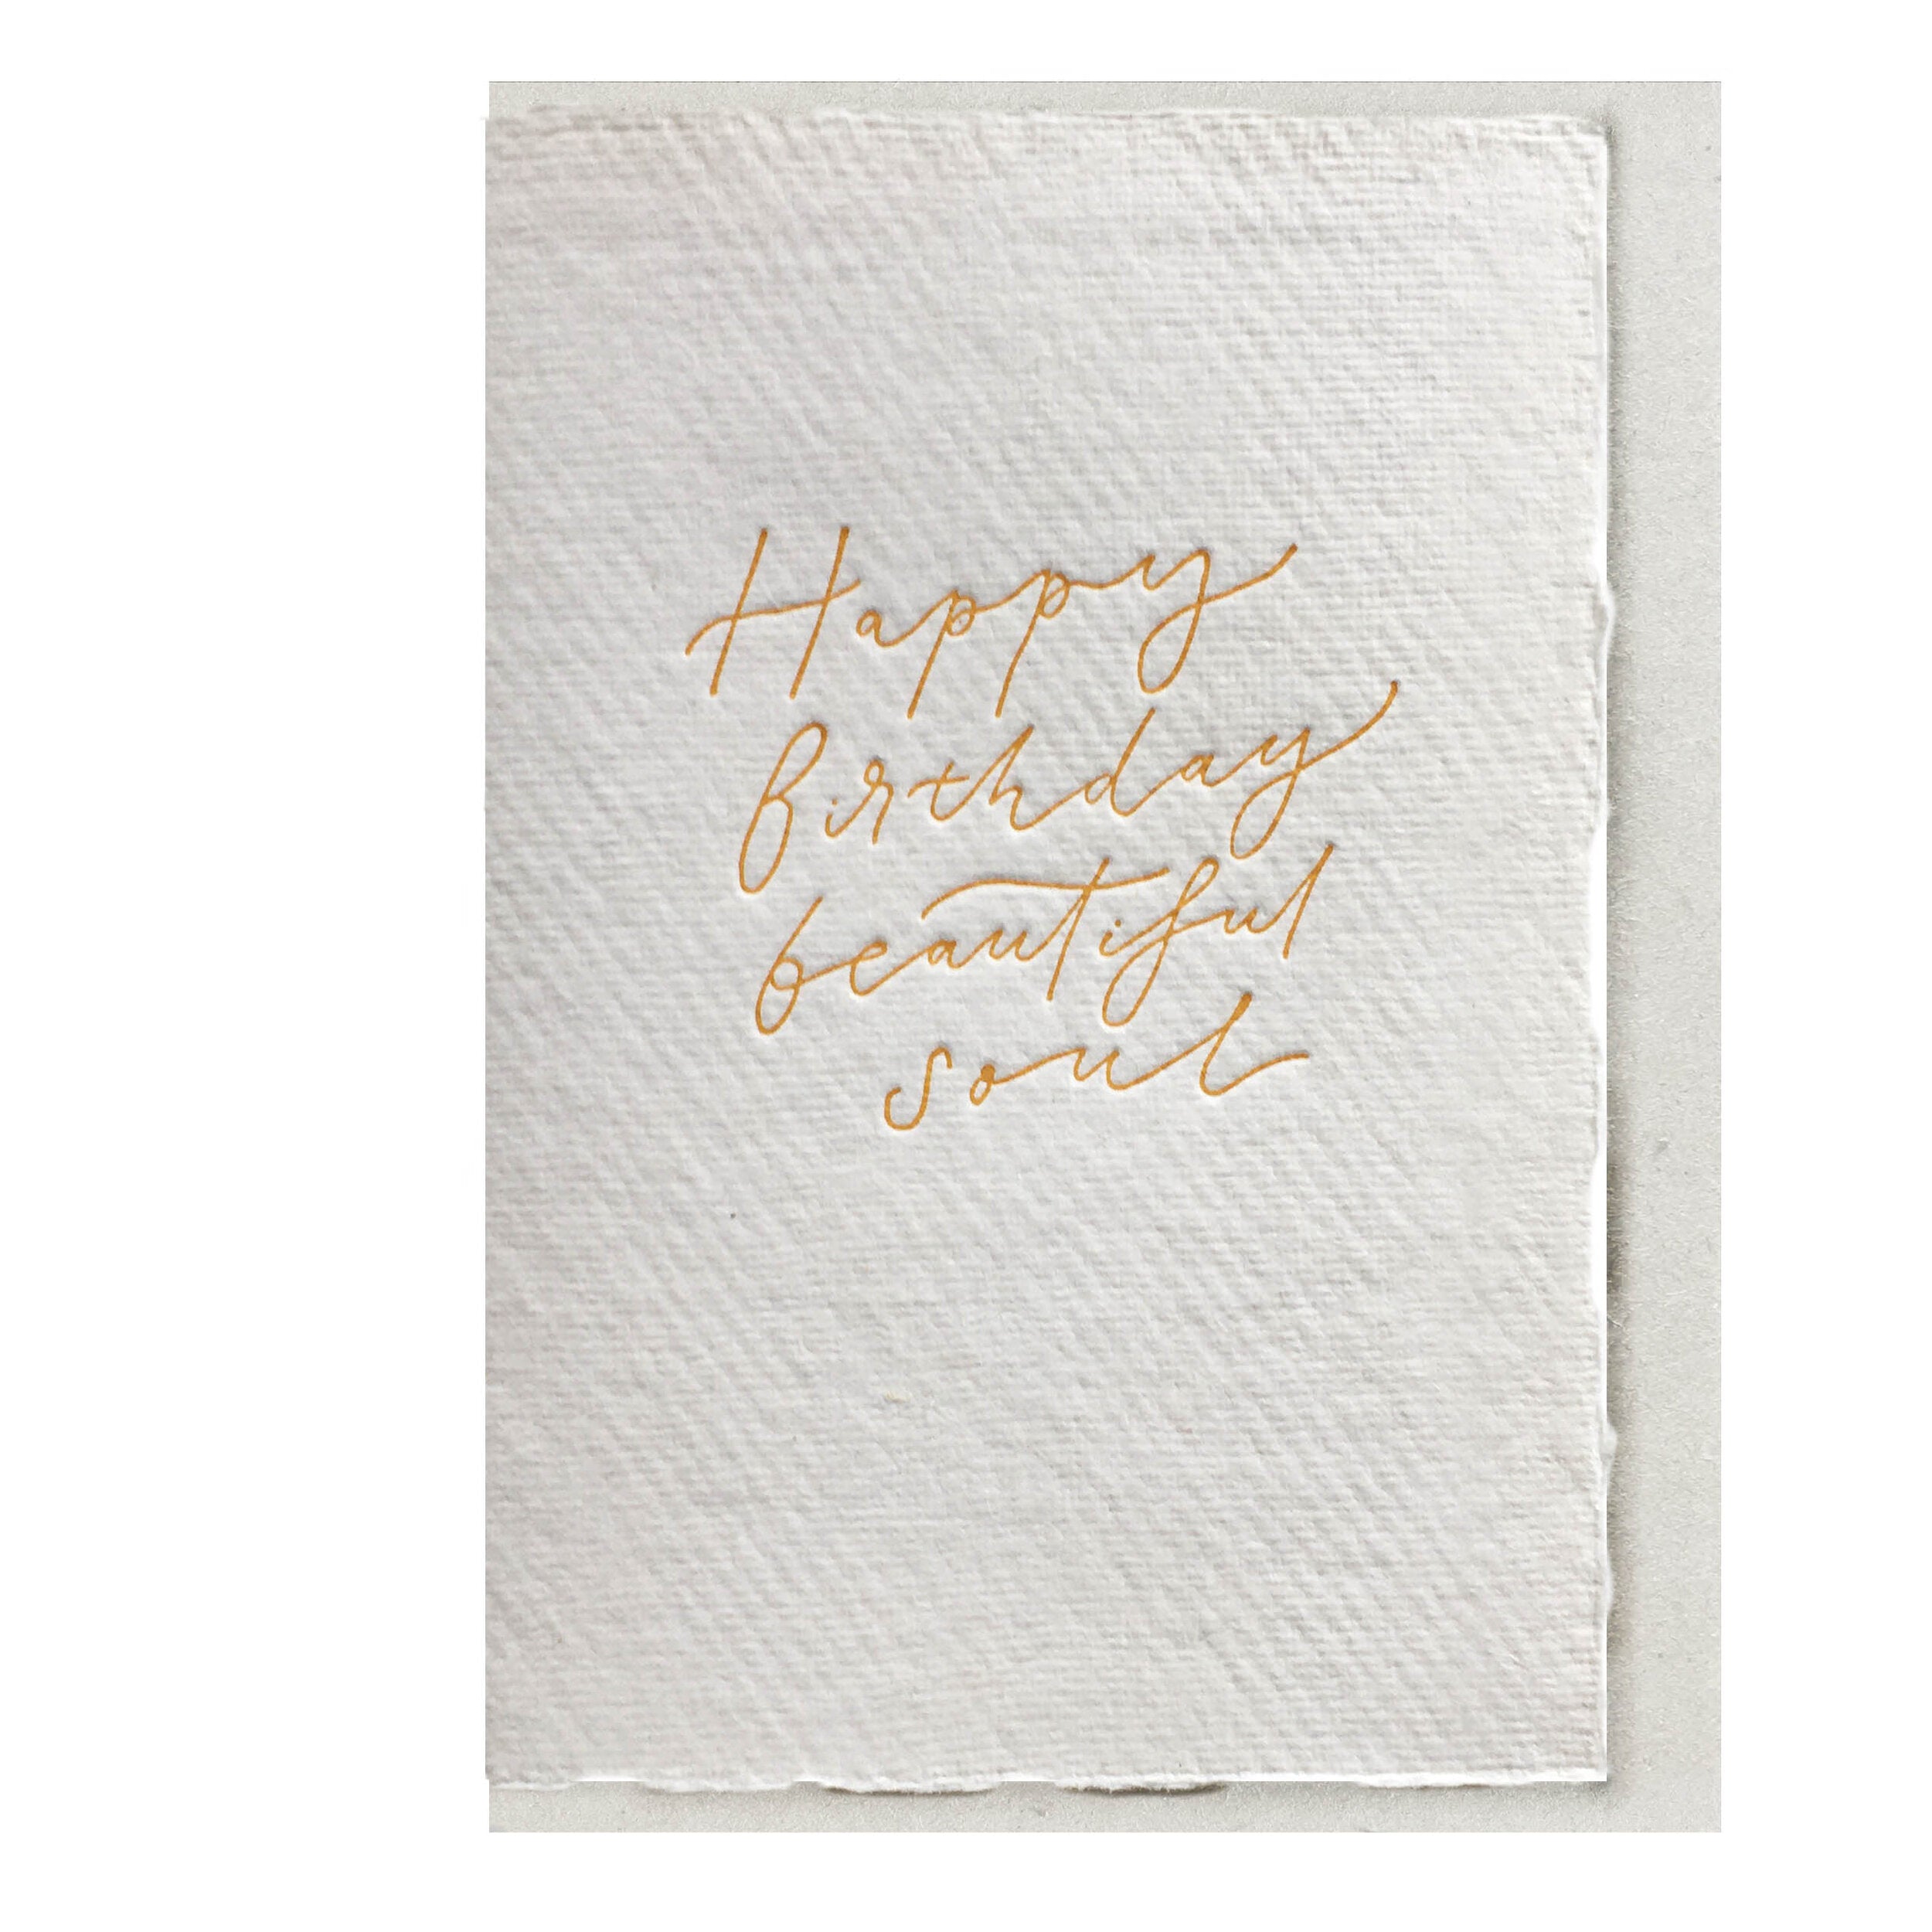 Happy
Birthday
beautiful
soul